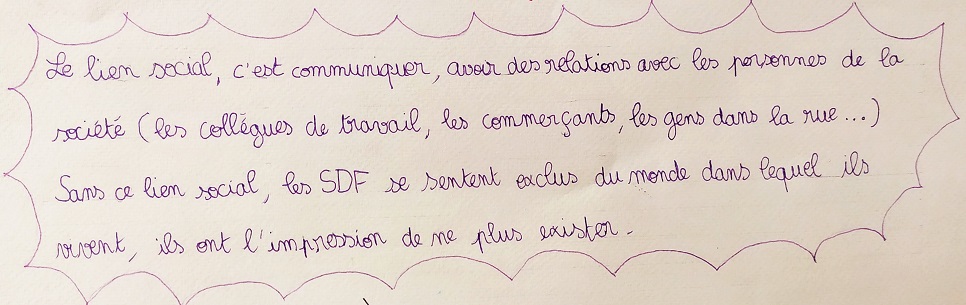 Le lien social, c'est communiquer, avoir des relations avec les personnes de la
société (les collégues de travail, les commerçants, les gens dans la rue...)
Sans ce lien social, les SDF se sentent exclus du monde dans lequel ils
vivent, ils ont l'impression de ne plus exister.